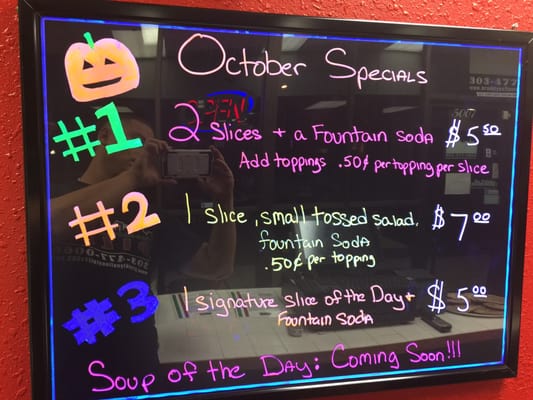 October Specials
#1 2 Slices + a Fountain Soda $5 50
Add toppings .50¢ per topping per slice
#2 1 slice, small tossed salad, $7 00
fountain Soda
.50¢ per topping
#3 1 signature slice of the Day + $5 00
Fountain Soda
Soup of the Day: Coming Soon!!!
303-477